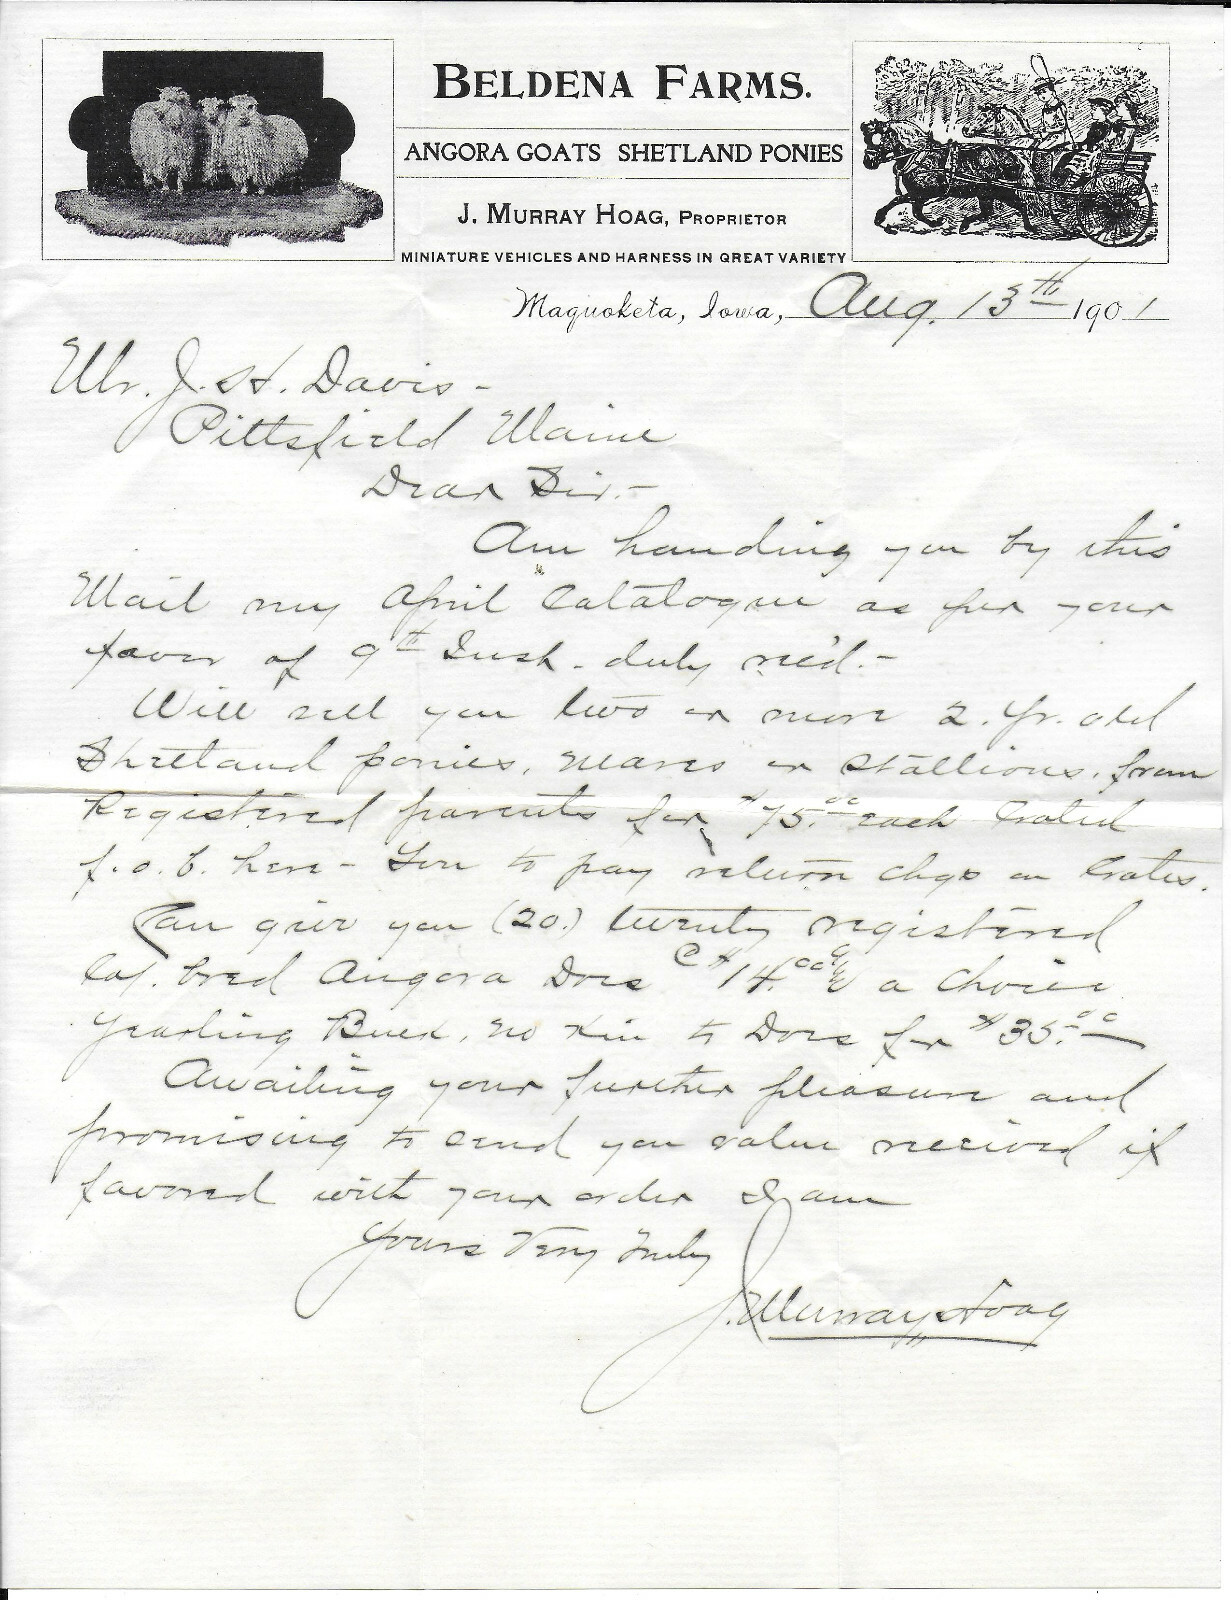 BELDENA FARMS.
ANGORA GOATS SHETLAND PONIES
J. MURRAY HOAG, PROPRIETOR
MINIATURE VEHICLES AND HARNESS IN GREAT VARIETY
Maquoketa, Iowa, Aug. 13th 1901
Mr. J. H. Davis -
Pittsfield Maine
Dear Sir. -
Am handing you by this
Mail my April Catalogue as per your
favor of 9th Inst. duly rec'd. -
Will sell you two or more 2. Yr. old
Shetland ponies, mares or stallions. from
Registered parents for $75.00 each Crated
f. o. b. here - You to pay return chgs on Crates.
Can give you (20.) twenty registered
bred Angora Does @ $14.00 a Choice
Yearling Buck, no kin to Does for $35.00
Awaiting your further pleasure and
promising to send you value received if
favored with your order I am
Yours Very Truly
J. Murray Hoag